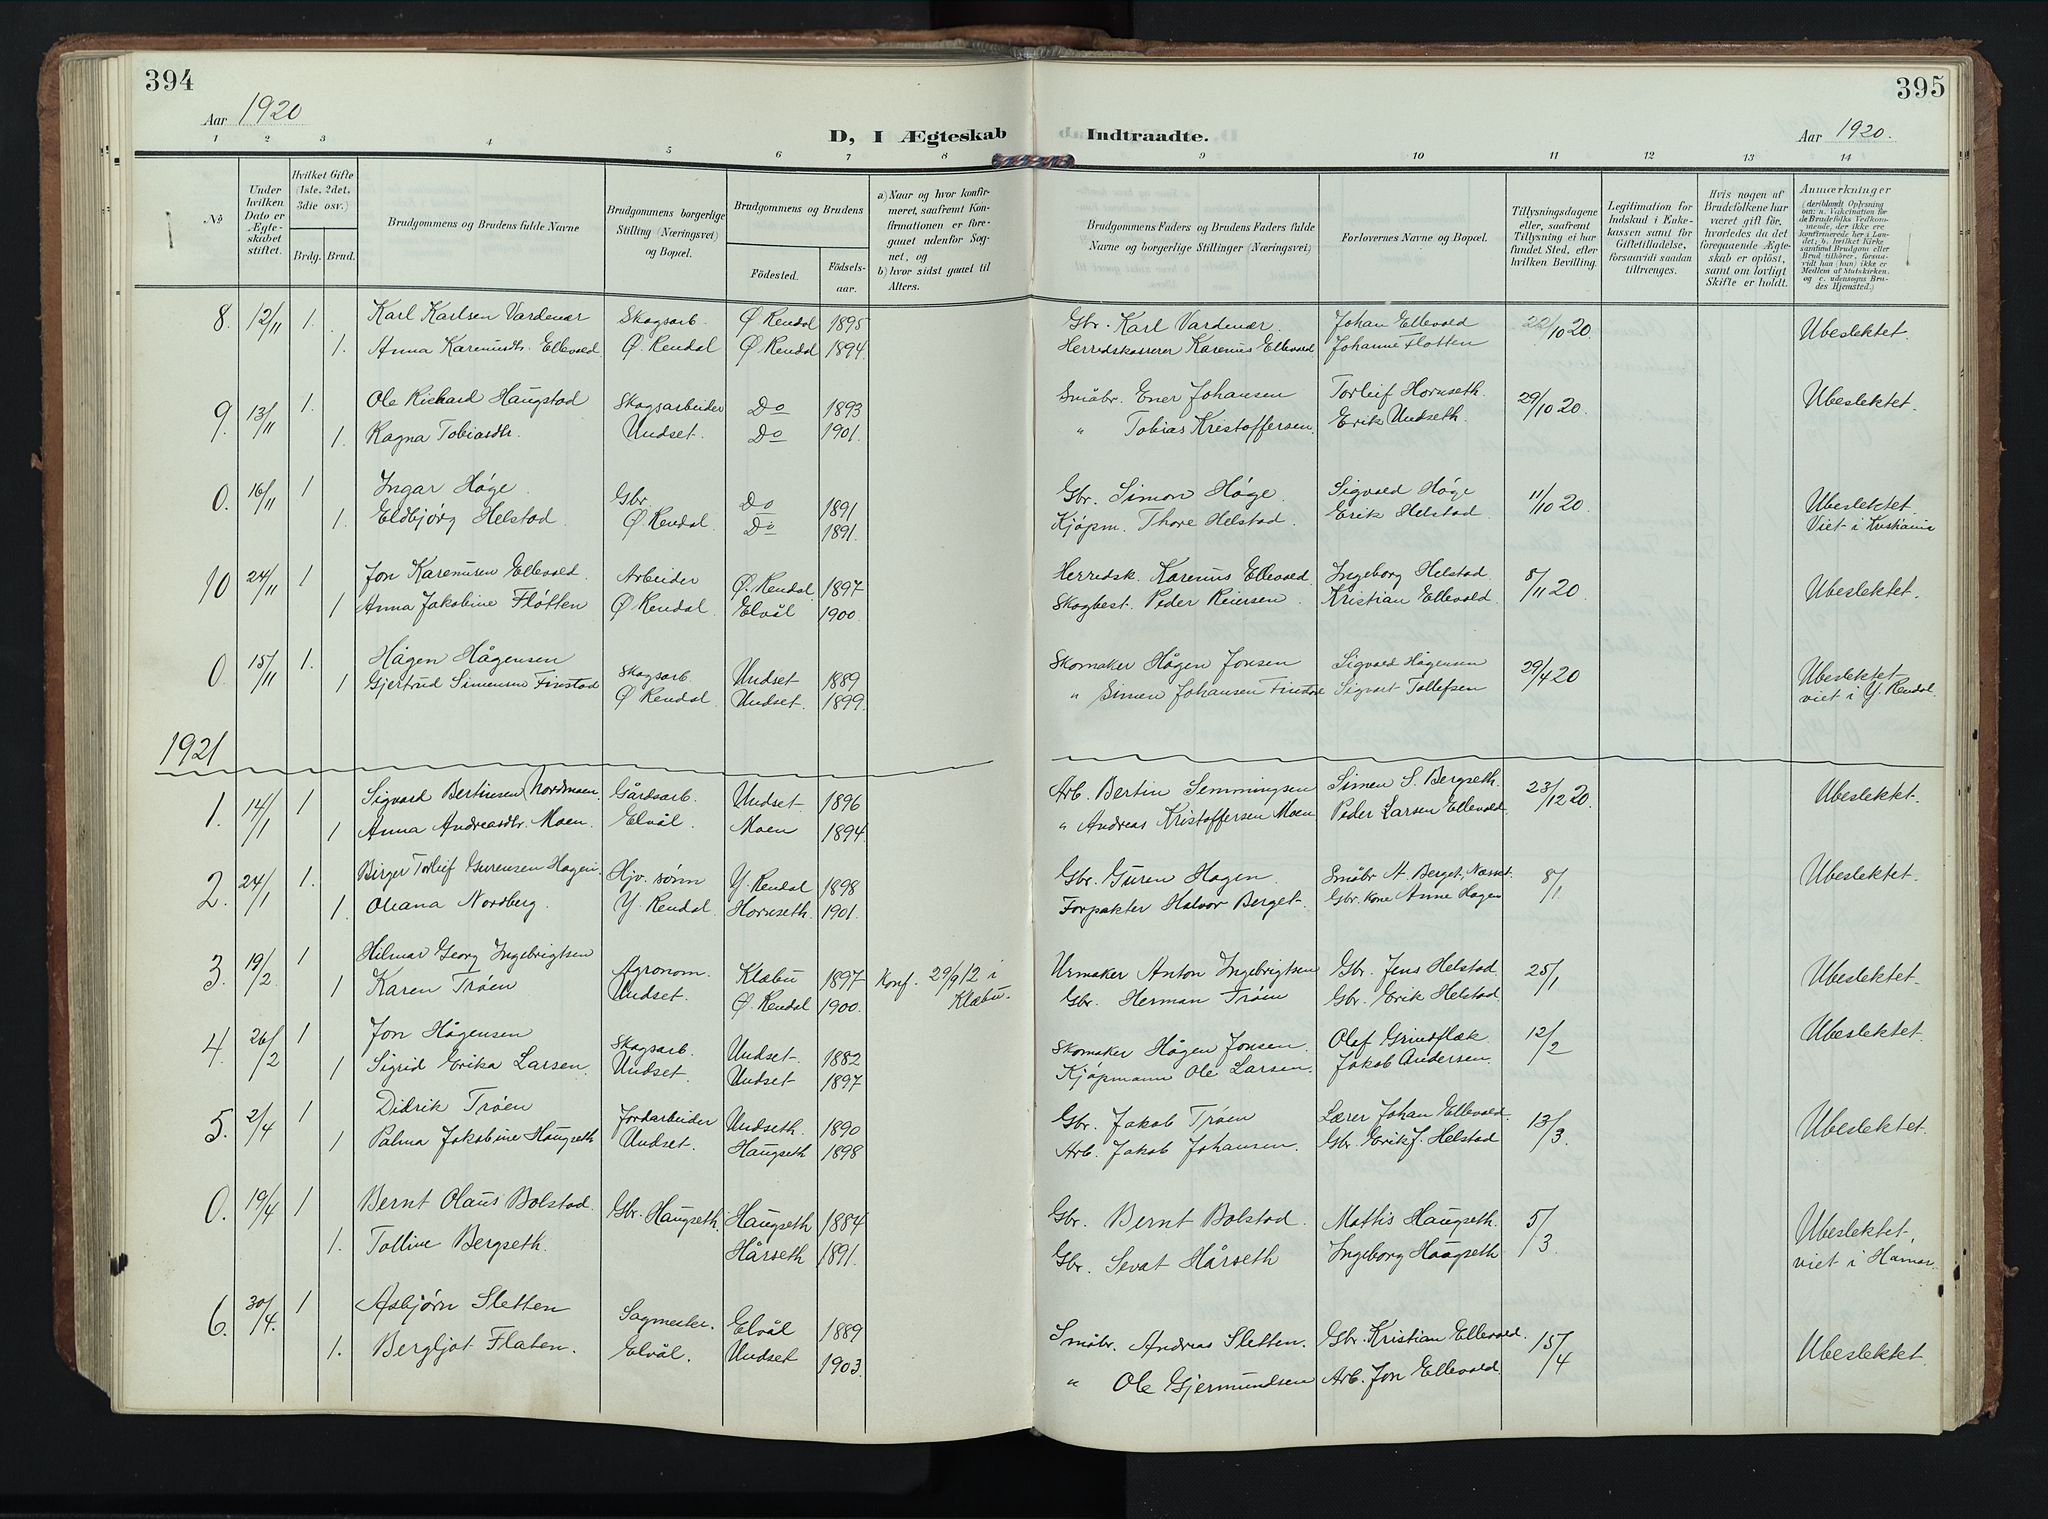 394
395
Aar 1920
D, I Ægteskab Indtraadte.
Aar 1920.
1 2 3 4 5 6 7 8 9 10 11 12 13 14
№
Under hvilken Dato er Ægteskabet stiftet.
Hvilket Gifte (1ste, 2det, 3die osv.)
Brdg. Brud.
Brudgommens og Brudens fulde Navne
Brudgommens borgerlige Stilling (Næringsvei) og Bopæl.
Brudgommens og Brudens
Födested.
Födselsaar.
a) Naar og hvor konfirmeret, saafremt Konfirmationen er foregaaet udenfor Sognet, og
b) hvor sidst gaaet til Alters.
Brudgommens Faders og Brudens Faders fulde Navne og borgerlige Stillinger (Næringsvei)
Forlovernes Navne og Bopæl.
Tillysningsdagene eller, saafremt Tillysning ei har fundet Sted, efter hvilken Bevilling
Legitimation for Indskud i Enkekassen samt for Giftetilladelse, forsaavidt saadan tiltrænges.
Hvis nogen af Brudefolkene har været gift för, hvorledes da det foregaaende Ægteskab er oplöst, samt om lovligt Skifte er holdt.
Anmærkninger (deriblandt Oplysning om: a. Vaccination for de Brudefolks Vedkommende, der ikke ere konfirmerede her i Landet; b. hvilket Kirkesamfund Brudgom eller Brud tilhörer, forsaavidt han (hun) ikke er Medlem af Statskirken. og c. udensogns Brudes Hjemsted.)
8. 12/11 1. Karl Karlsen Vardenær Skogsarb. Ø Rendal 1895 Gbr. Karl Vardenær. Johan Ellevold 22/10 20 Ubeslektet.
1. Anna Kareniusdtr. Ellevold Ø. Rendal Ø Rendal 1894. Herredskasserer Karenius Ellevold Johanne Fløtten
9. 13/11 1. Ole Richard Haugstad Skogsarbeider Do 1893 Småbr. Ener Johansen Torleif Hornseth. 29/10 20. Ubeslektet.
1. Ragna Tobiasdtr. Undset. Do 1901. " Tobias Krestoffersen. Erik Undseth.
0. 16/11 1 Ingar Høge. Gbr. Do 1891 Gbr. Simon Høge. Sigvald Høge 11/10 20. Ubeslektet.
1. Eldbjørg Helstad. Ø Rendal. Do 1891. Kjøpm. Thore Helstad. Erik Helstad. Viet i Kristiania
10 24/11 1 Jon Kareniusen Ellevold. Arbeider Ø. Rendal. 1897 Herredsk. Karenius Ellevold. Ingeborg Helstad. 5/11 20 Ubeslektet.
1 Anna Jakobine Fløtten Ø Rendal. Elvål 1900. Skogbest. Peder Reiersen Kristian Ellevold.
0. 15/11 1. Hågen Hågensen Skogsarb. Undset 1889 Skomaker Hågen Jonsen Sigvald Hågensen 29/4 20 Ubeslektet
1 Gjertrud Simensen Finstad Ø Rendal. Undset. 1899. " Simen Johansen Finstad Sigvart Tollefsen viet i Y. Rendal.
1921
1. 14/1 1 Sigvard Bertinsen (Nordmoen. Gårdsarb. Undset. 1896 Arb. Bertin Semmingsen Simen S. Bergseth. 23/12 20. Ubeslekkt.
1 Anna Andreasdtr. Moen. Elvål. Moen 1894 " Andreas Kristoffersen Moen Peder Larsen Ellevold.
2. 24/1 1. Birger Torleif Gurensen Hagen. Hjv. sønn Y. Rendal 1898 Gbr. Guren Hagen. Småbr A. Berget, Næsset. 8/1 Ubeslektet.
1. Oliana Nordberg. Y. Rendal. Hornseth. 1901. Forpakter Halvor Berget. Gbr. kone Anne Hagen
3. 19/2. 1 Hilmar Georg Ingebrigtsen Agronom. Klæbu 1897 Konf. 29/9 12 i Klæbu. Urmaker Anton Ingebrigtsen Gbr. Jens Helstad. 25/1 Ubeslektet.
1 Karen Trøen Undset. Ø. Rendal 1900. Gbr. Herman Trøen Gbr. Erik Helstad.
4. 26/2 1 Jon Hågensen Skogsarb. Undset. 1882 Skomaker Hågen Jonsen. Olaf Grindflæk 12/2 Ubeslektet.
1 Sigrid Erika Larsen. Undset. Undset 1897. Kjøpmann Ole Larsen. Jakob Andersen.
5. 2/4 1 Didrik Trøen Jordarbeider Undseth. 1890 Gbr. Jakob Trøen Lærer Johan Ellevold. 13/3. Ubeslektet.
1 Palma Jakobine Haugseth Undset. Haugseth 1898 Arb. Jakob Johansen. Gbr. Erik J. Helstad
0. 19/4 1 Bernt Olaus Bolstad. Gbr. Haugseth. Haugseth 1884 Gbr. Bernt Bolstad. Mattis Haugseth. 5/3 Ubeslektet,
1. Tolline Bergseth. Hårseth 1891. Gbr. Sevat Hårseth Ingeborg Haugseth viet i Hamar.
6. 30/4. 1 Asbjørn Sletten Sagmester. Elvål 1889 Småbr. Andreas Sletten. Gbr. Kristian Ellevold. 15/4 Ubeslektet.
1. Bergljot Flaten. Elvål. Undset 1903. " Ole Gjermundsen Arb. Jon Ellevold.